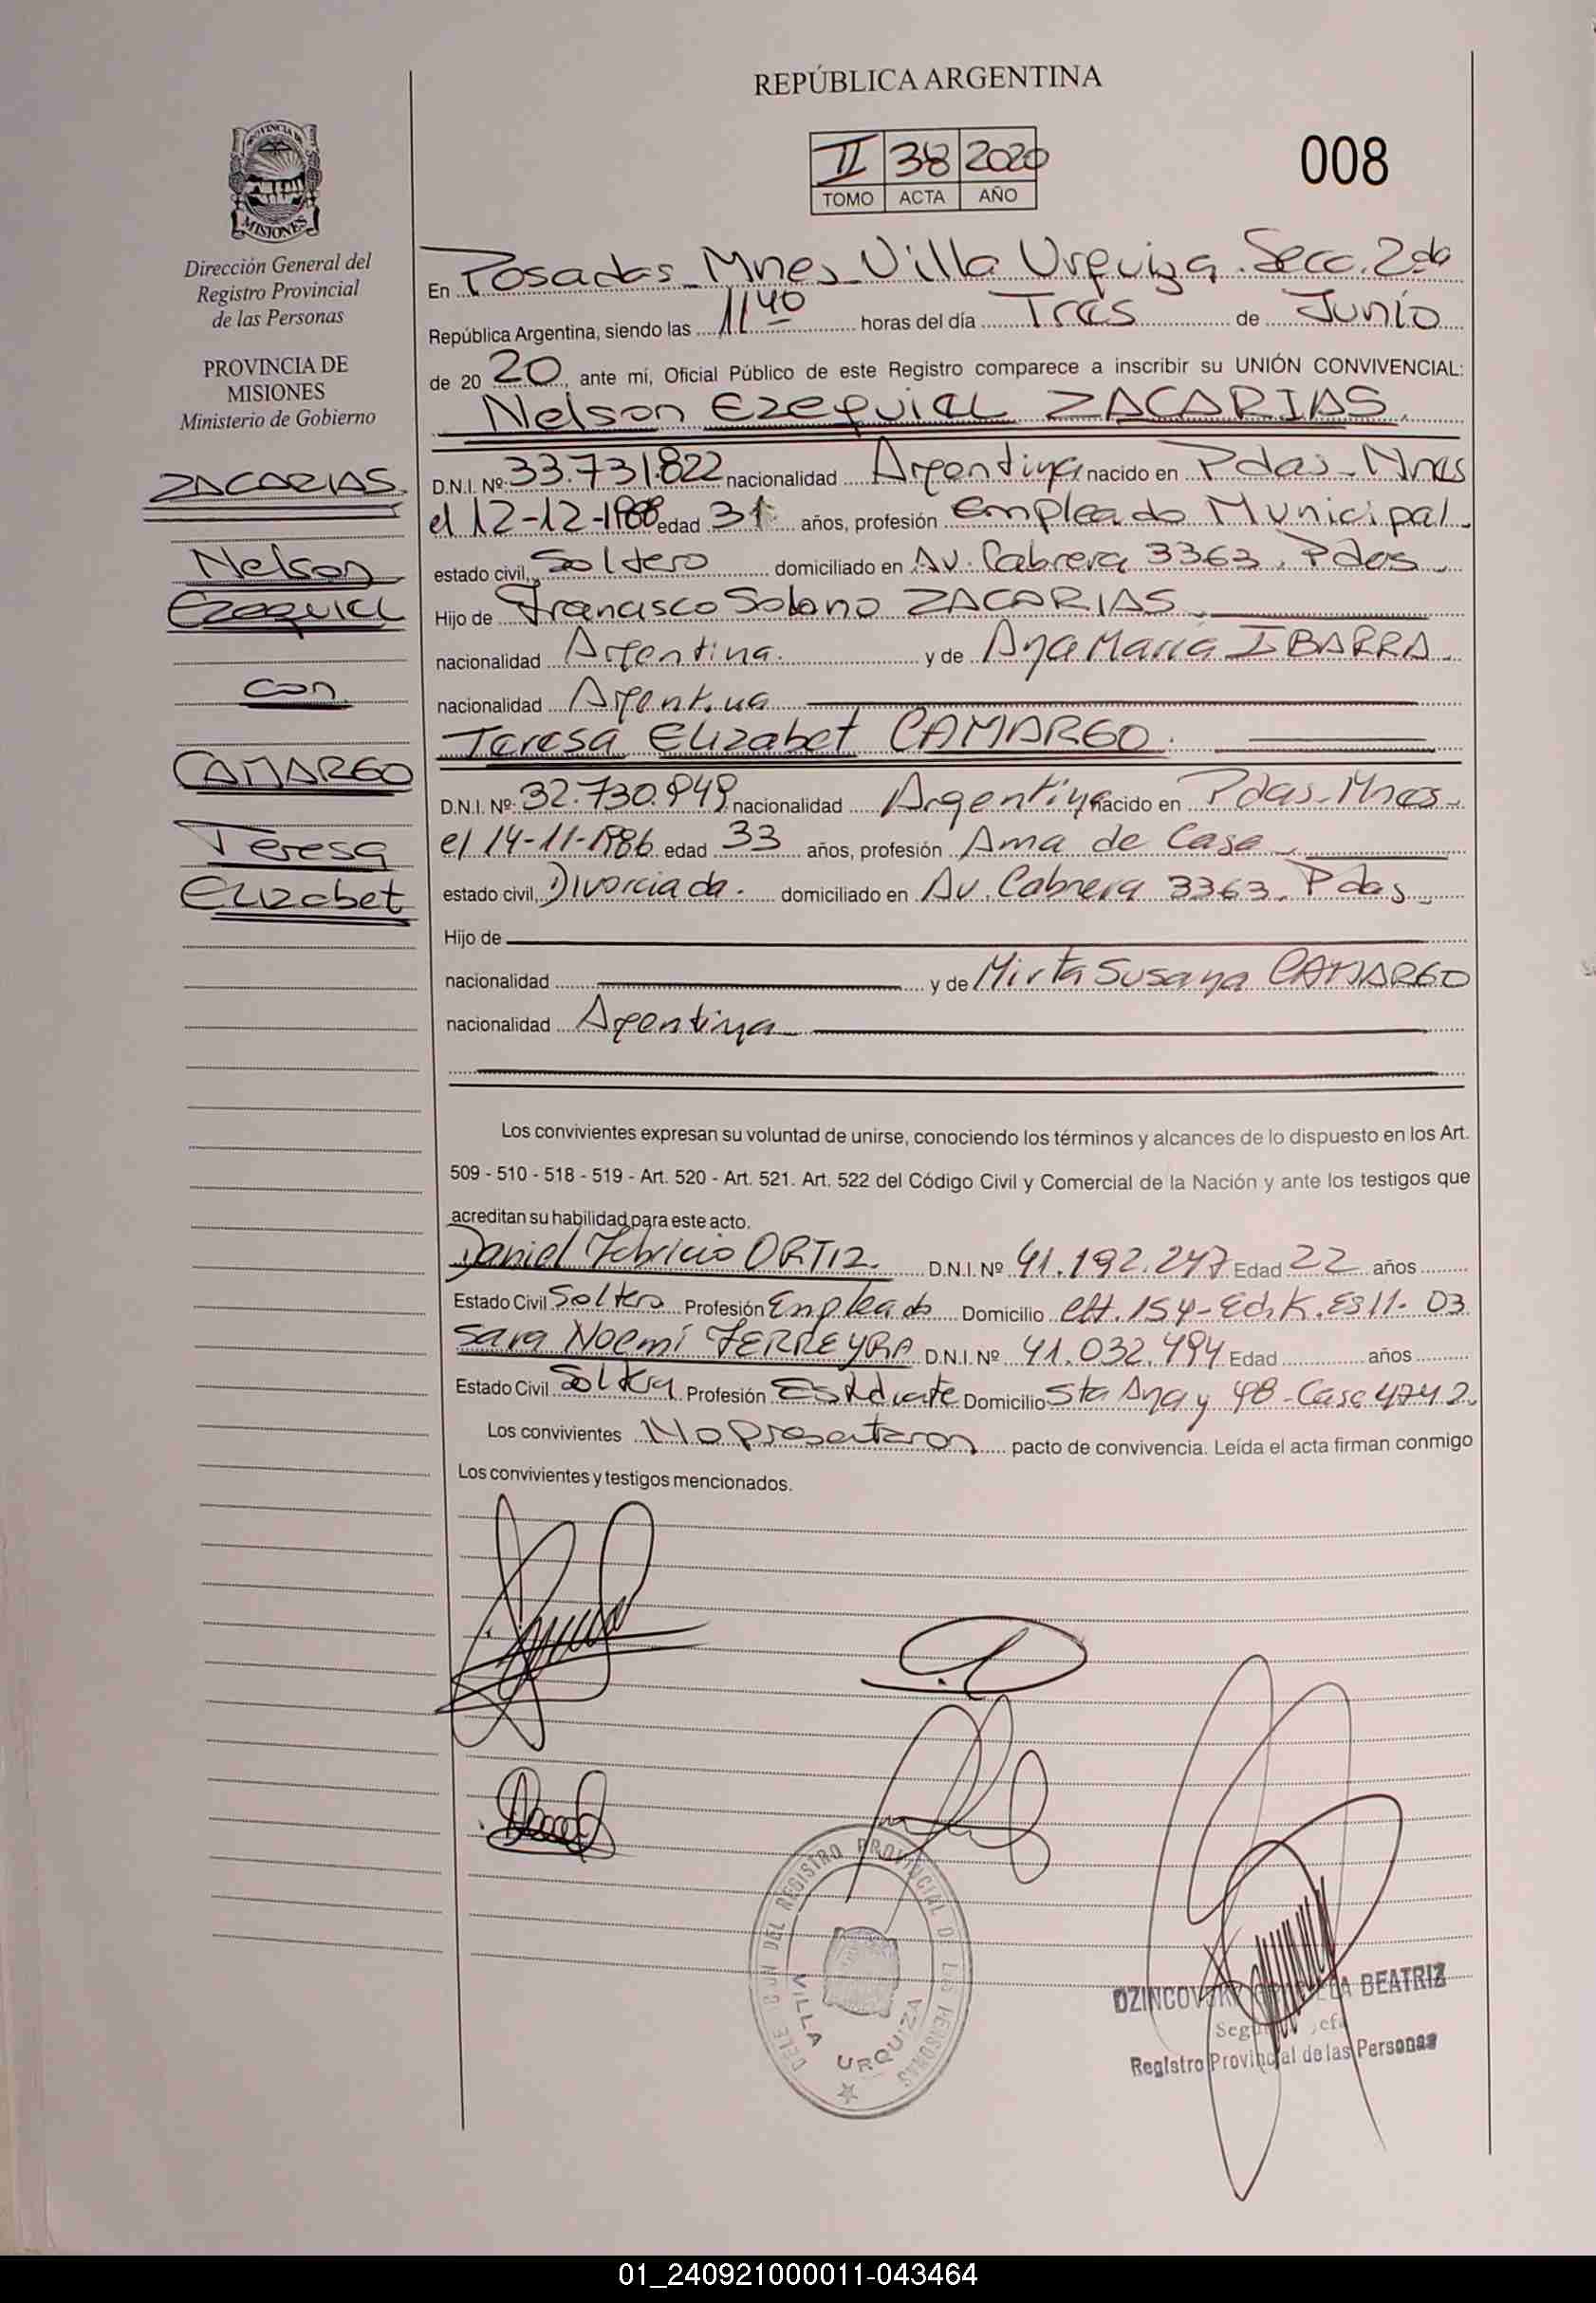 REPÚBLICA ARGENTINA
II 38 2020
TOMO ACTA AÑO
008
PROVINCIA DE
MISIONES
Dirección General del
Registro Provincial
de las Personas
PROVINCIA DE
MISIONES
Ministerio de Gobierno
ZACARIAS
Nelson
Ezequiel
con
CAMARGO
Teresa
Elizabet
En Posadas Mnes Villa Urquiza. Secc. 2da
República Argentina, siendo las 11 40 horas del día Tres de Junio
de 20 20, ante mí, Oficial Público de este Registro comparece a inscribir su UNIÓN CONVIVENCIAL:
Nelson Ezequiel ZACARIAS
D.N.I. Nº 33.731.822 nacionalidad Argentina nacido en Pdas-Mnes
el 12-12-1988 edad 31 años, profesión Empleado Municipal
estado civil, Soltero domiciliado en Av. Cabrera 3363. Pdas
Hijo de Francisco Solano ZACARIAS
nacionalidad Argentina. y de Ana María IBARRA
nacionalidad Argentina
Teresa Elizabet CAMARGO.
D.N.I. Nº 32.730.949 nacionalidad Argentina nacido en Pdas-Mnes
el 14-11-1986 edad 33 años, profesión Ama de Casa
estado civil, Divorciada. domiciliado en Av. Cabrera 3363. Pdas
Hijo de
nacionalidad y de Mirta Susana CAMARGO
nacionalidad Argentina
Los convivientes expresan su voluntad de unirse, conociendo los términos y alcances de lo dispuesto en los Art.
509 - 510 - 518 - 519 - Art. 520 - Art. 521. Art. 522 del Código Civil y Comercial de la Nación y ante los testigos que
acreditan su habilidad para este acto.
Daniel Fabricio ORTIZ. D.N.I. Nº 41.192.247 Edad 22 años
Estado Civil Soltero Profesión Empleado Domicilio 154-Ed.K. 03
Sara Noemí FERREYRA D.N.I. Nº 41.032.494 Edad años
Estado Civil Soltera Profesión Estudiante Domicilio Sta Ana y 98-Casa 4742
Los convivientes No presentaron pacto de convivencia. Leída el acta firman conmigo
Los convivientes y testigos mencionados.
REGISTRO PROVINCIAL DE LAS PERSONAS
VILLA URQUIZA
BEATRIZ
Registro Provincial de las Personas
01_240921000011-043464